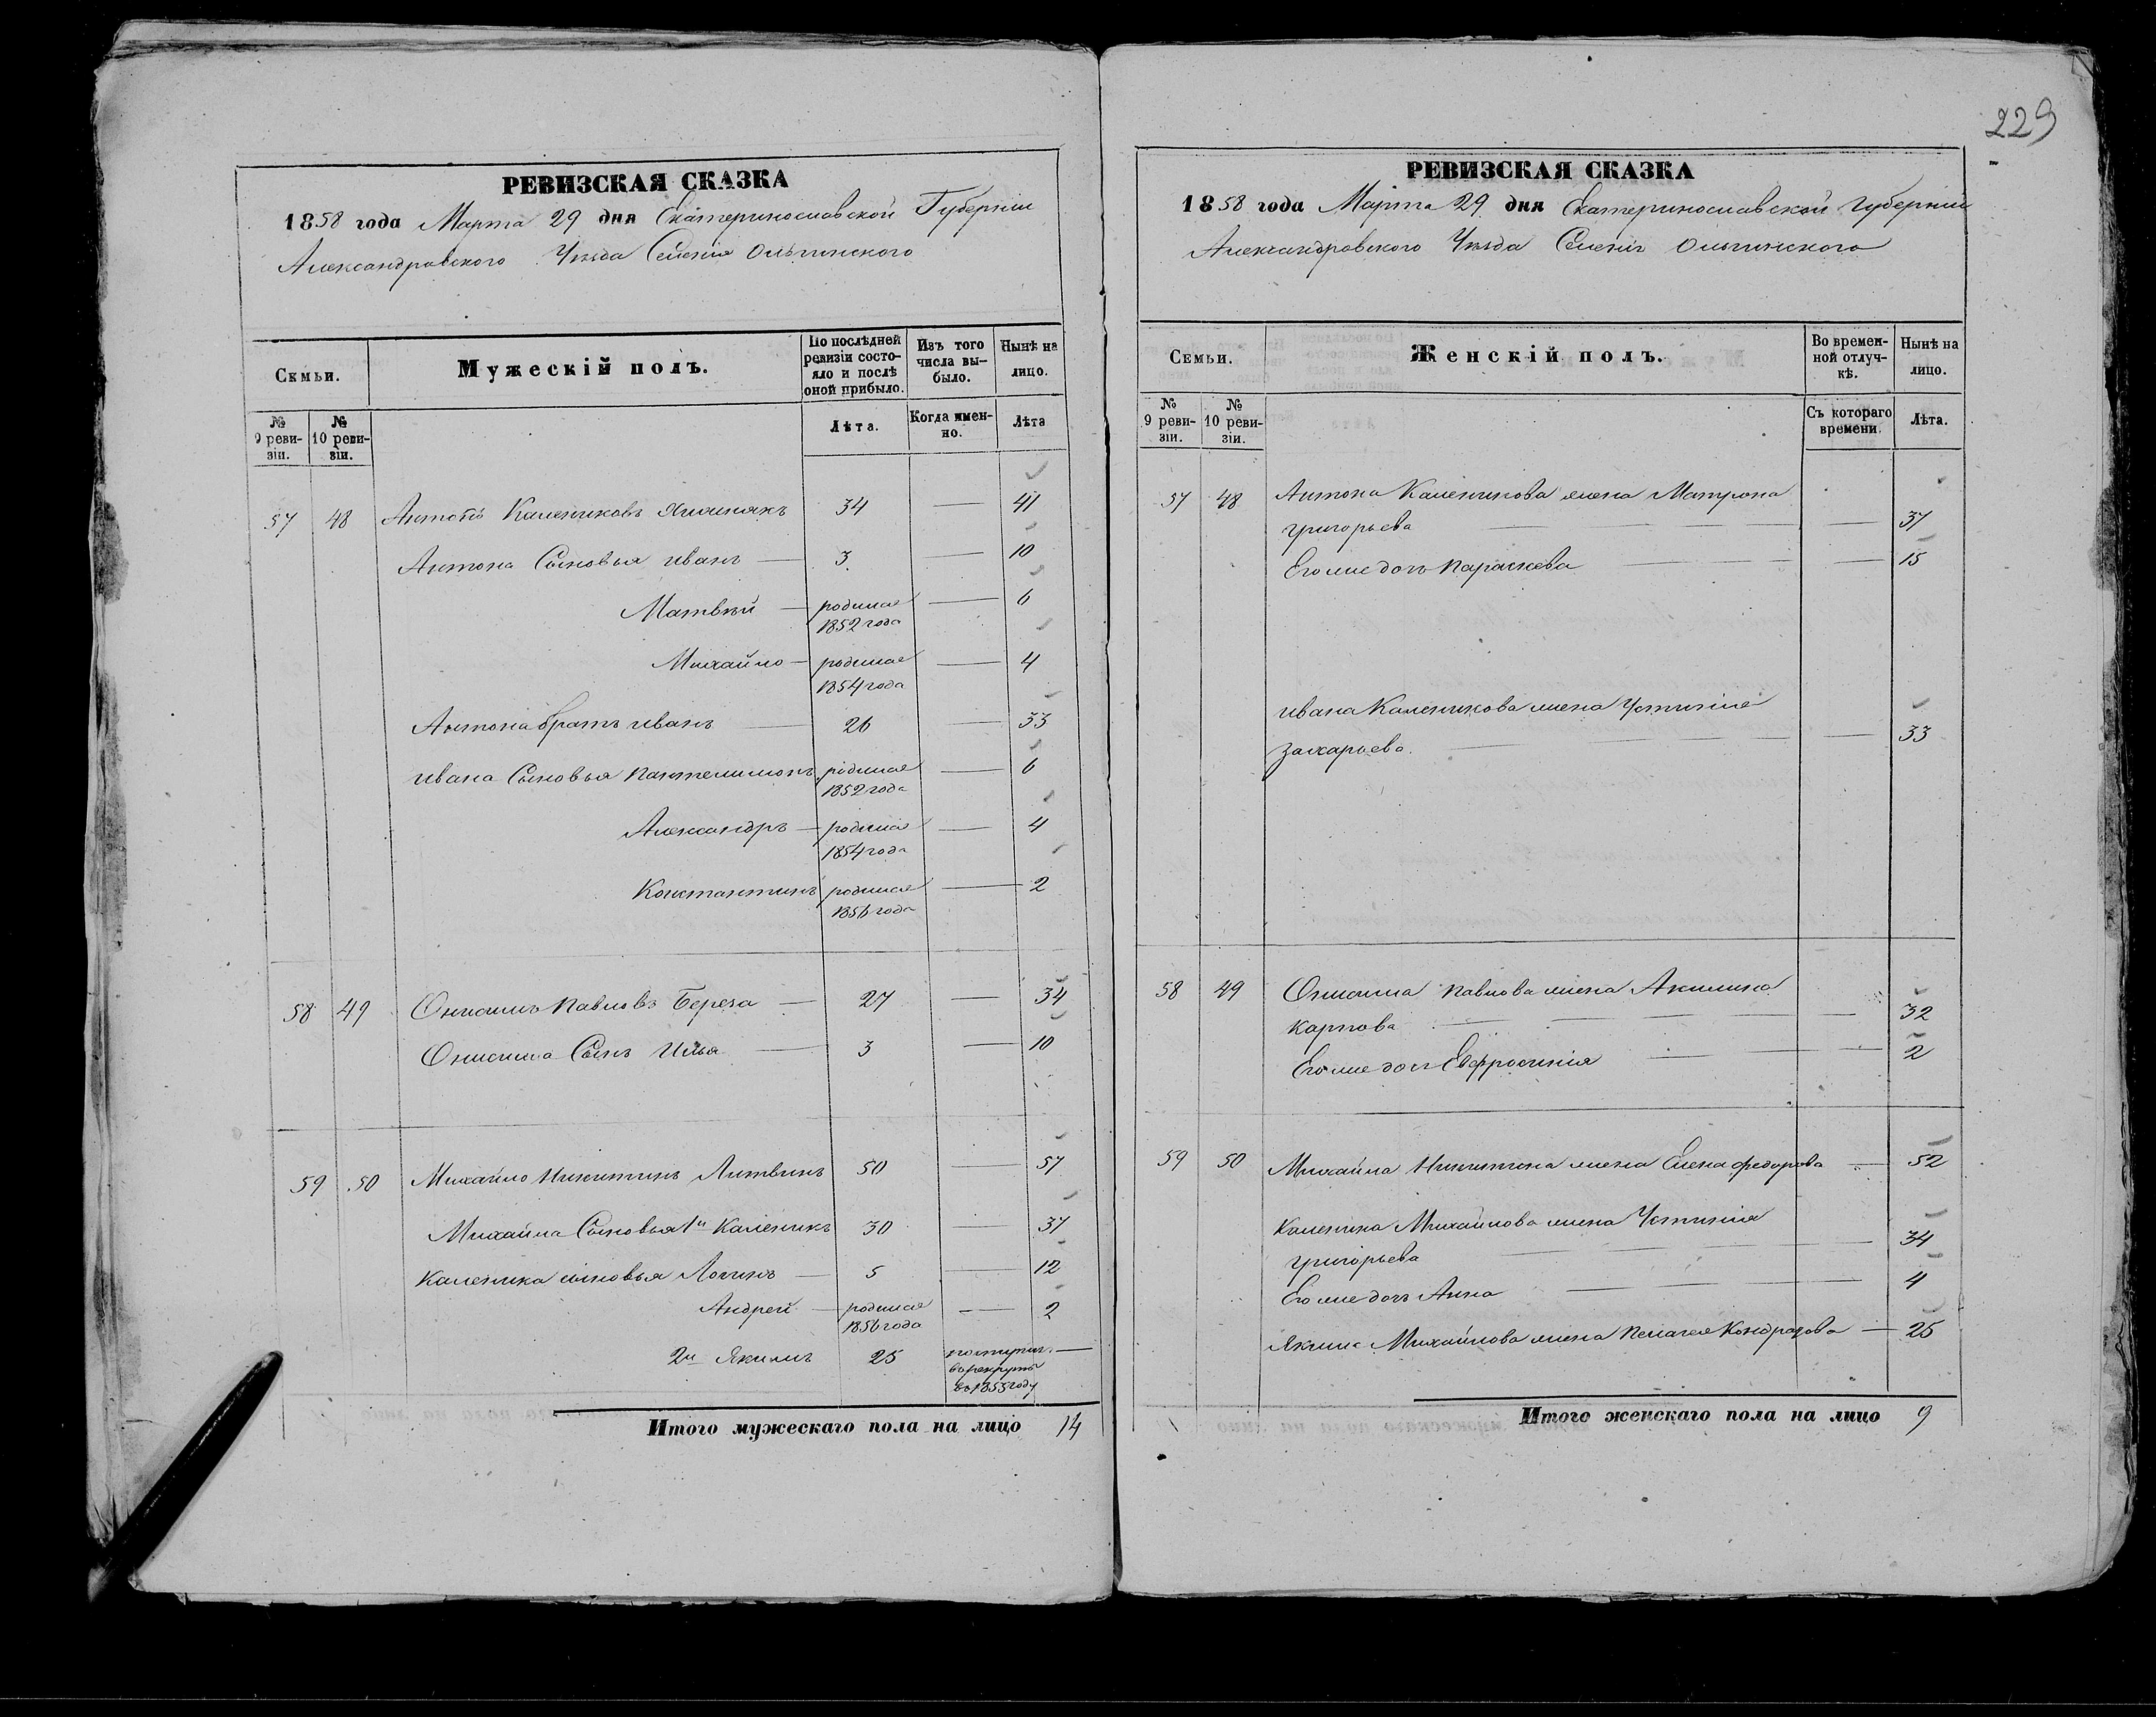 229
РЕВИЗСКАЯ СКАЗКА
1858 года Марта 29 дня Екатеринославской Губерніи
Александровского Уезда Селенія Ольгинского
Семьи.
Мужескій полъ.
По послѣдней ревизіи состояло и послѣ оной прибыло.
Изъ того числа выбыло.
Нынѣ на лицо.
№ 9 ревизіи.
№ 10 ревизіи.
Лѣта.
Когда именно.
Лѣта
57 48 Антонъ Калениковъ 34 — 41
Антона Сыновья Иванъ — 3 — 10
Матвѣй — родился 1852 года — 6
Михайло — родился 1854 года — 4
Антона братъ Иванъ — 26 — 33
Ивана Сыновья Пантелимонъ родился 1852 года — 6
Александръ — родился 1854 года — 4
Константинъ родился 1856 года — 2
58 49 Онисимъ Павловъ Береза — 27 — 34
Онисима Сынъ Илья — 3 — 10
59 50 Михайло Никитинъ Литвинъ 50 — 57
Михайла Сыновья 1й Каленикъ 30 — 37
Каленика сыновья Логинъ — 5 — 12
Андрей — родился 1856 года — 2
2й Якимъ 25 поступилъ в рекруты въ 1855 году —
Итого мужескаго пола на лицо 14
РЕВИЗСКАЯ СКАЗКА
1858 года Марта 29 дня Екатеринославской Губерніи
Александровского Уезда Селенія Ольгинского
Семьи.
Женскій полъ.
Во временной отлучкѣ.
Нынѣ на лицо.
№ 9 ревизіи.
№ 10 ревизіи.
Съ котораго времени.
Лѣта.
57 48 Антона Каленикова жена Матрона
Григорьева — 37
Его же дочь Параскева — 15
Ивана Каленикова жена Устинія
Захарьева — 33
58 49 Онисима Павлова жена Акилина
Карпова — 32
Его же дочь Евфросинія — 2
59 50 Михайла Никитина жена Елена Федорова — 52
Каленика Михайлова жена Устинія
Григорьева — 34
Его же дочь Анна — 4
Якима Михайлова жена Пелагея Кондратова — 25
Итого женскаго пола на лицо 9